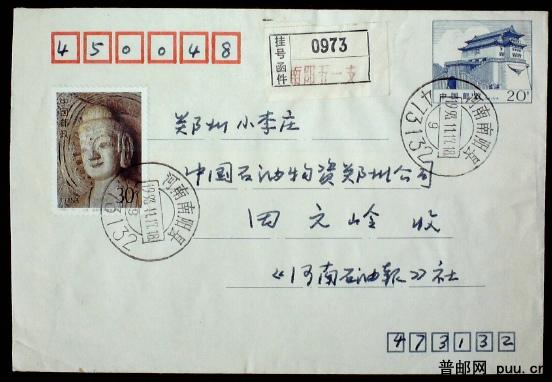 450048
挂号函件
0973
南阳五一支
中国邮政
20分
中国邮政
30分
郑州小李庄
中国石油物资郑州公司
田元岭 收
《河南石油报》社
河南南阳
473132
河南南阳
473132
473132
普邮网 puu.cn